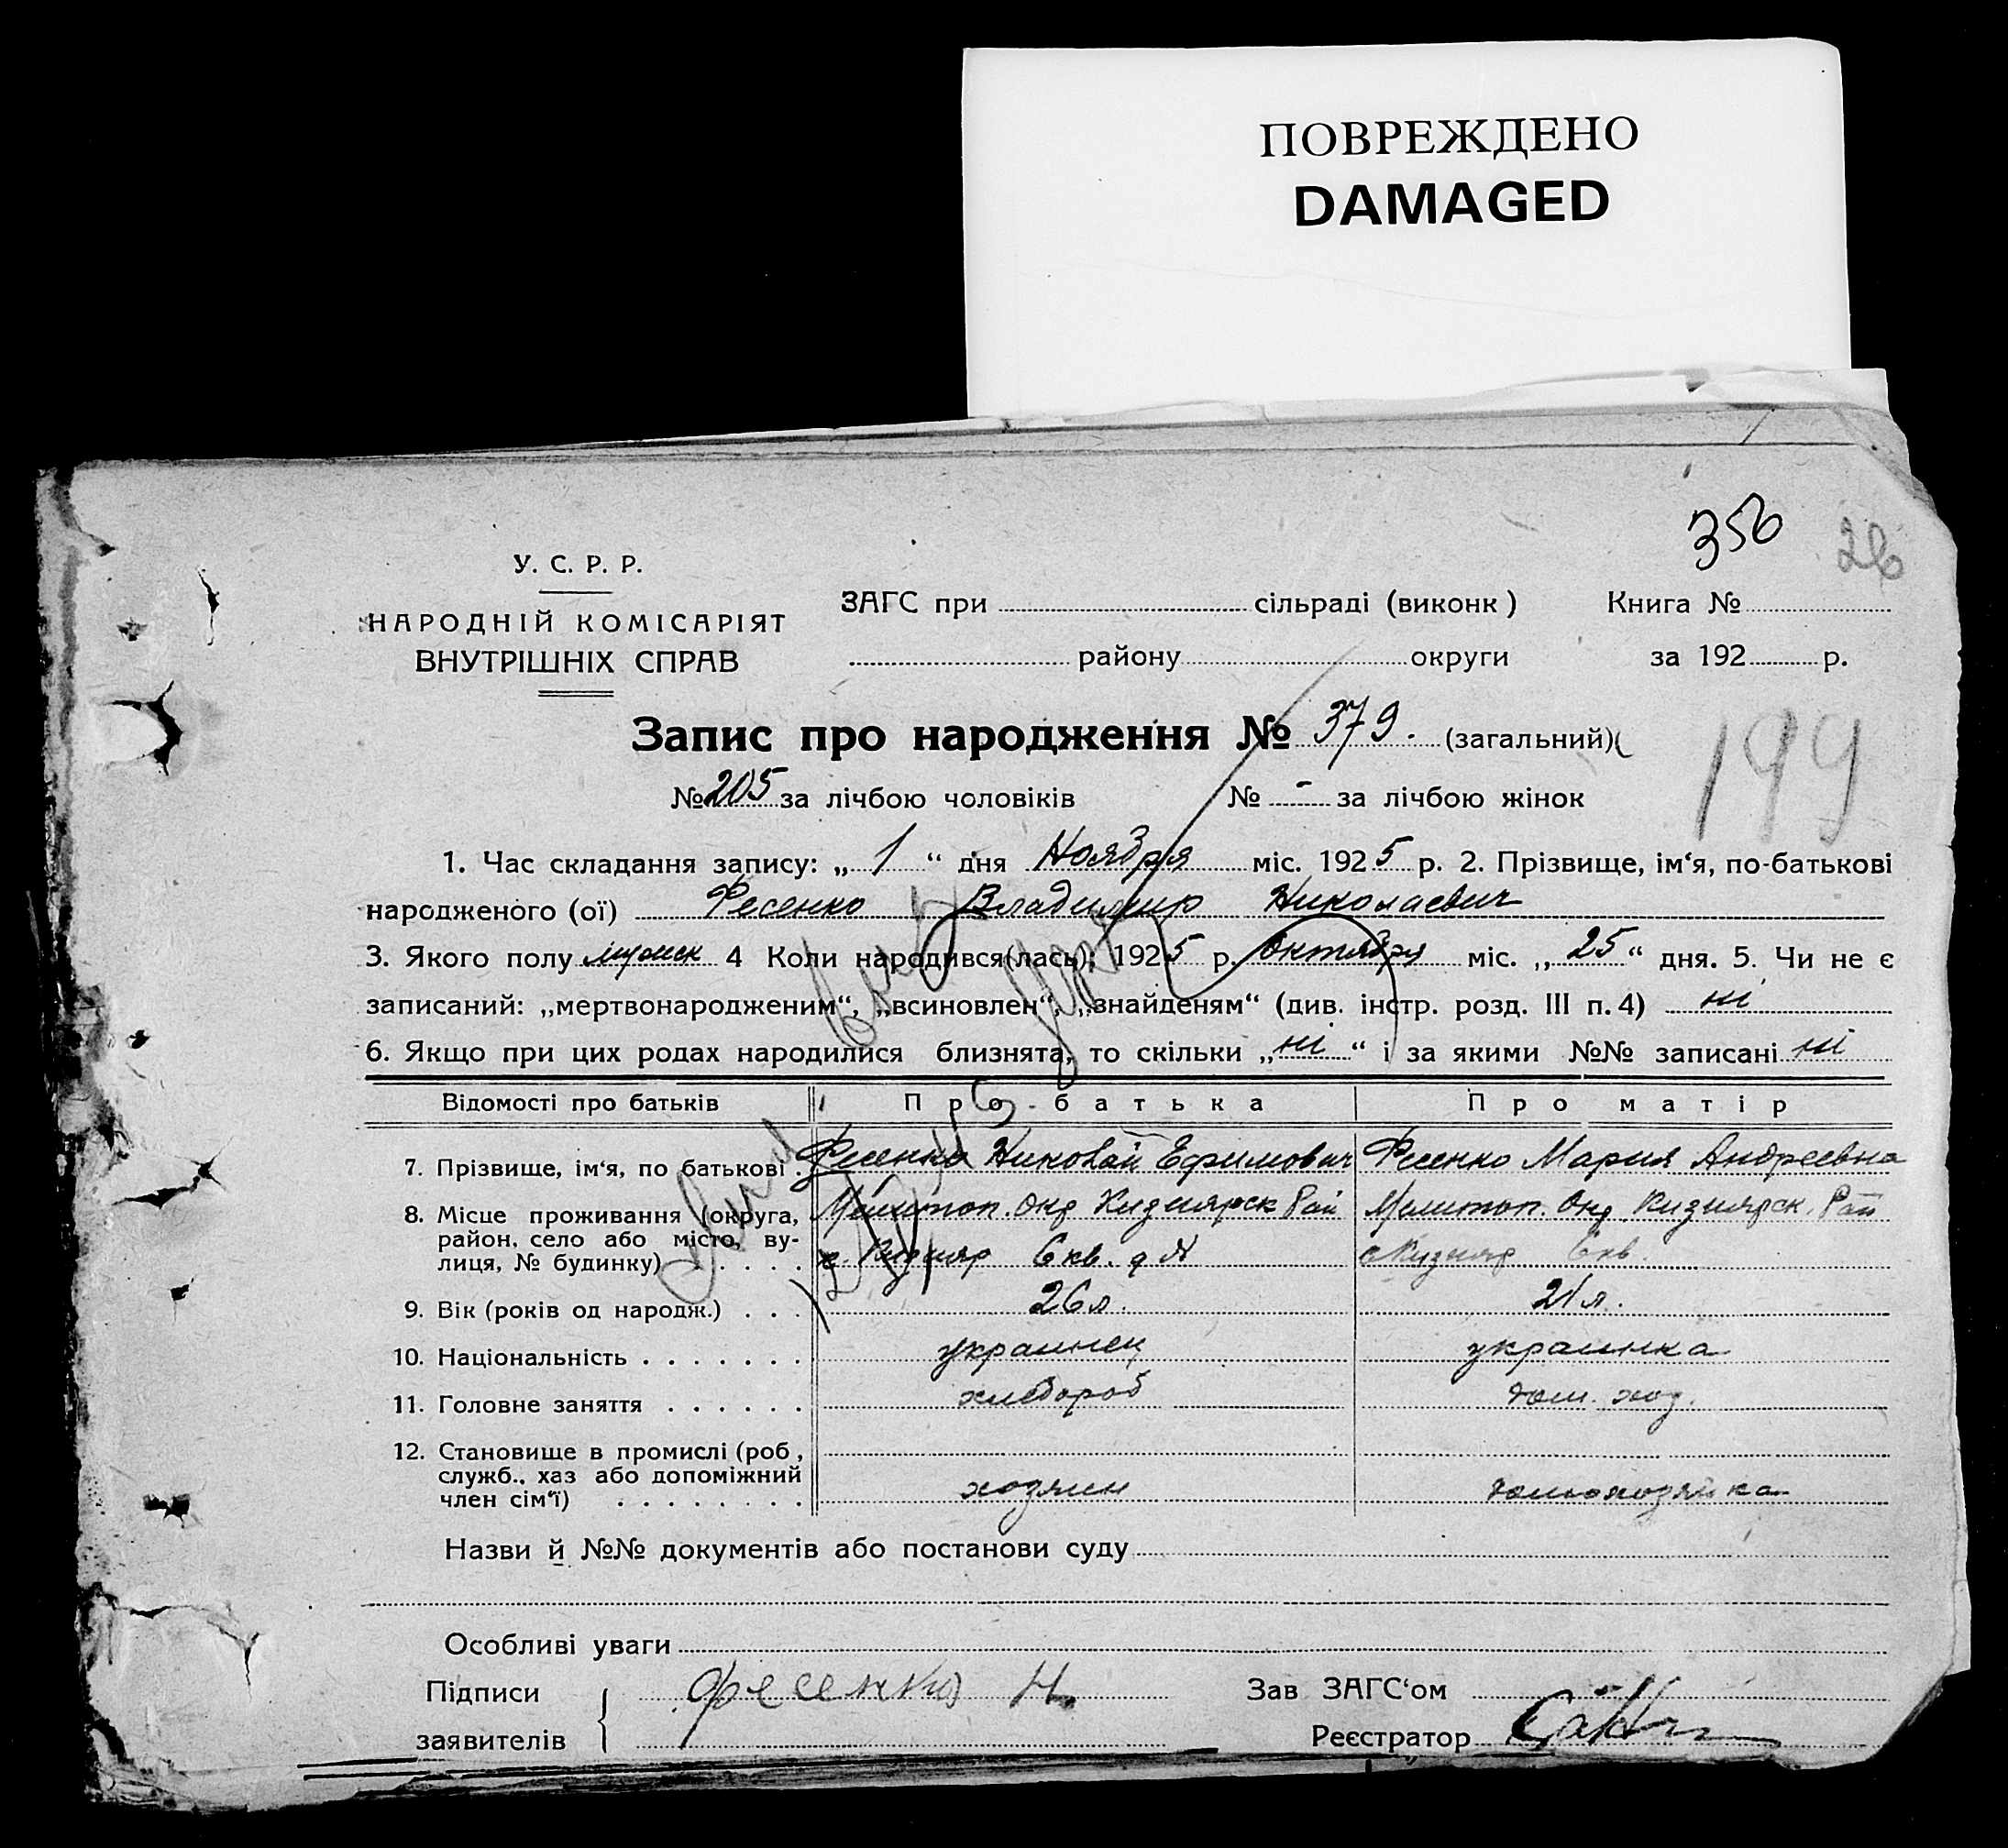 ПОВРЕЖДЕНО
DAMAGED
356
26
У. С. Р. Р.
НАРОДНІЙ КОМІСАРІЯТ
ВНУТРІШНІХ СПРАВ
ЗАГС при сільраді (виконк) Книга №
району округи за 192 р.
Запис про народження № 379. (загальний)
199
№ 205 за лічбою чоловіків № - за лічбою жінок
1. Час складання запису: „ 1 “ дня Ноября міс. 1925 р. 2. Прізвище, ім‘я, по-батькові
народженого (ої) Фесенко Владимир Николаевич
3. Якого полу мужеск 4 Коли народився(лась); 1925 р. Октября міс. „ 25 “ дня. 5. Чи не є
записаний: „мертвонародженим“, „всиновлен“, „знайденям“ (див. інстр. розд. III п. 4) ні
6. Якщо при цих родах народилися близнята, то скільки „ ні “ і за якими №№ записані ні
Відомості про батьків Про батька Про матір
7. Прізвище, ім‘я, по батькові . Фесенко Николай Ефимович Фесенко Мария Андреевна
8. Місце проживання (округа, Мелитоп. Окр Кизиярск Рай Мелитоп. Окр Кизиярск. Рай
район, село або місто, ву-
лиця, № будинку) . . . . . с. Кизияр 6 кв. д № с Кизияр 6 кв.
9. Вік (років од народж.) . . . 26 л. 21 л.
10. Національність . . . . . . . украинец украинка
11. Головне заняття . . . . . . хлебороб дом. хоз.
12. Становище в промислі (роб,
служб., хаз або допоміжний
член сім‘ї) . . . . . . . . хозяин домохозяйка
Назви й №№ документів або постанови суду
Особливі уваги
Підписи Фесенко Н. Зав ЗАГС‘ом
заявителів Реєстратор